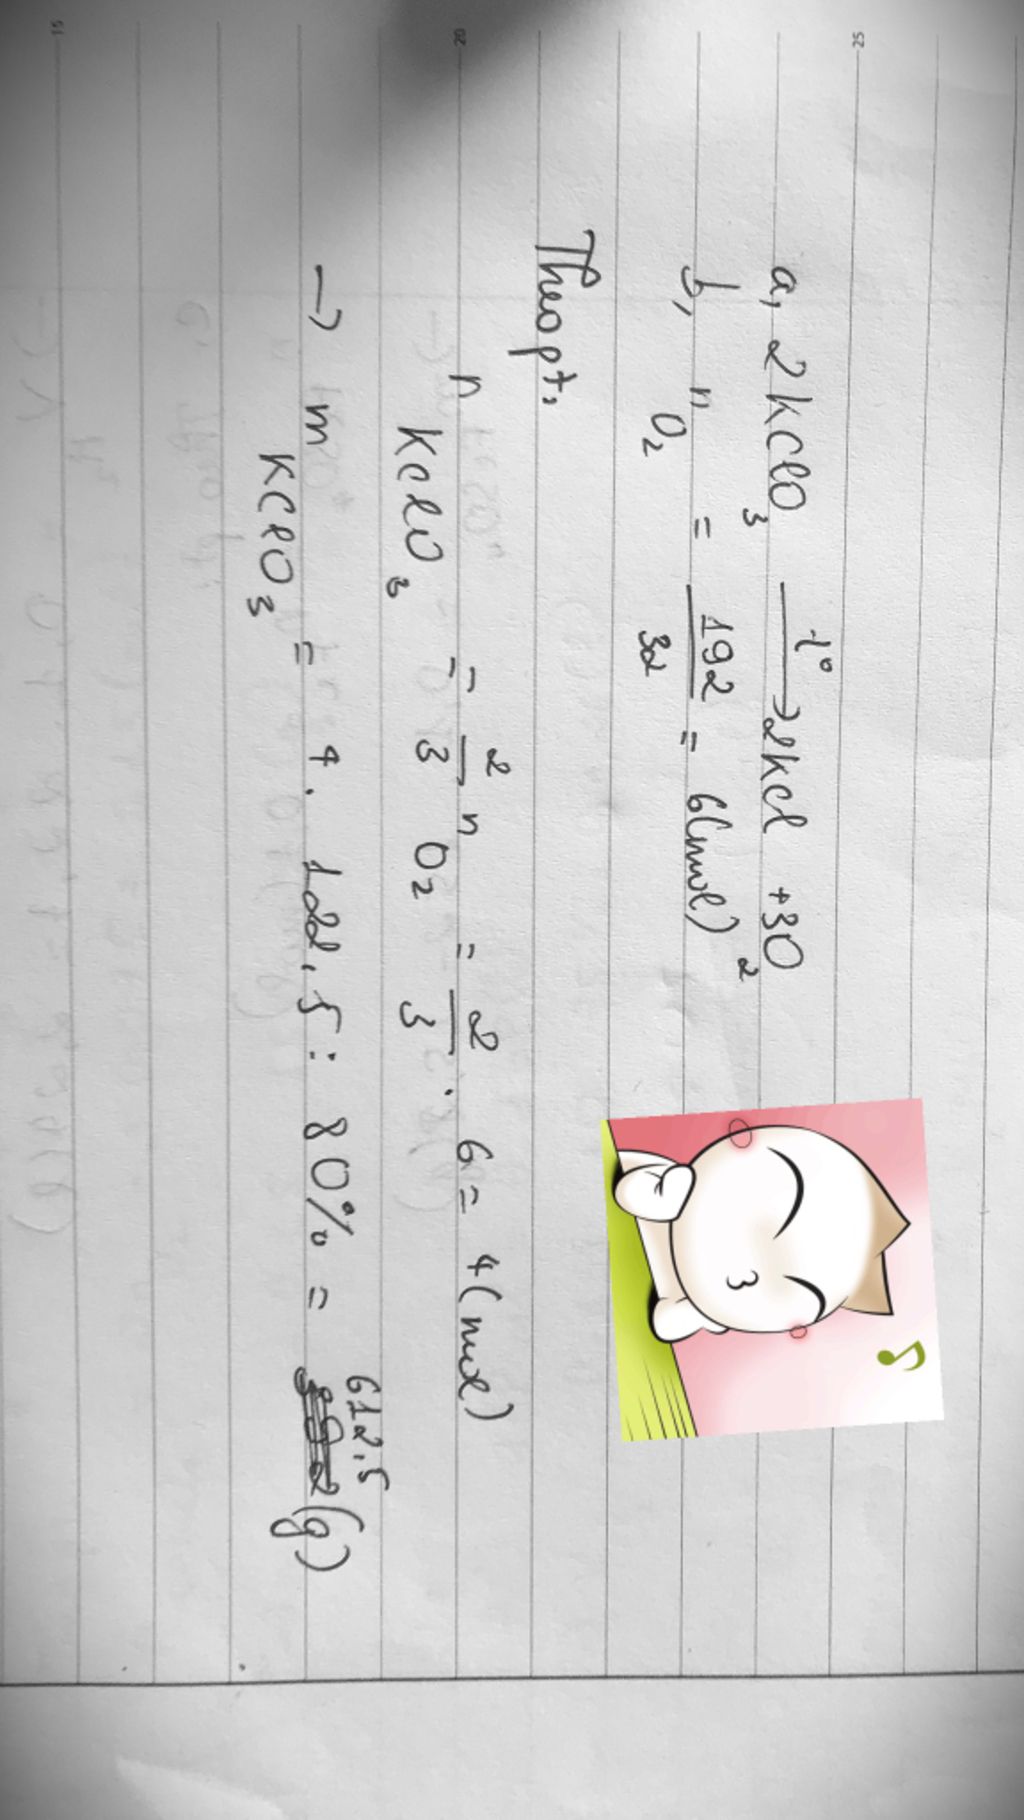 a, 2KClO3 t° → 2KCl + 3O2
b, nO2 = 192/32 = 6(mol)
Theo pt,
nKClO3 = 2/3 nO2 = 2/3 . 6 = 4(mol)
→ mKClO3 = 4 . 122,5 : 80% = 612,5 (g)
25
20
15